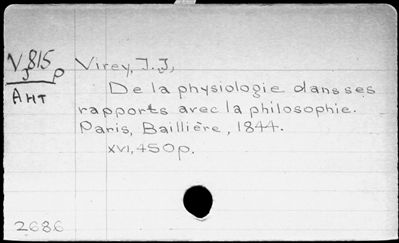 V815 Virey, J. J,
J p
AHT De la physiologie dans ses
rapports avec la philosophie.
Paris, Baillière, 1844.
XVI, 450p.
2686